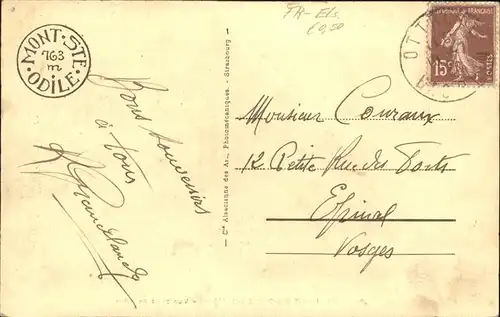 MONT·STE
763
m
·ODILE·
Bons souvenirs
à tous
FR-Els.
€0,50
OTT
REPUBLIQUE FRANÇAISE
15c
POSTES
— Cie Alsacienne des Arts Photomécaniques. - Strasbourg 1
Monsieur Couraux
12 Petite Rue des Forts
Epinal
Vosges